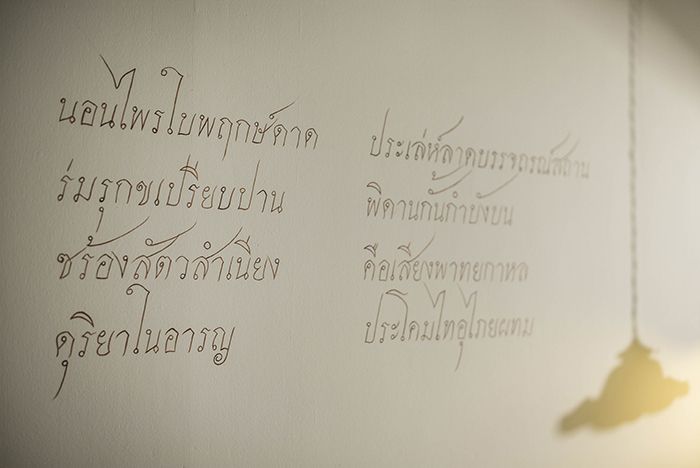 นอนไพรใบพฤกษ์ดาด
ร่มรุกขเปรียบปาน
ซร้องสัตวสำเนียง
ดุริยาในอารญ
ประเล่ห์ลาดบรรจถรณ์สถาน
พิดานกั้นกำบังบน
คือเสียงพาทยกาหล
ประโคมไทอุไภยผทม